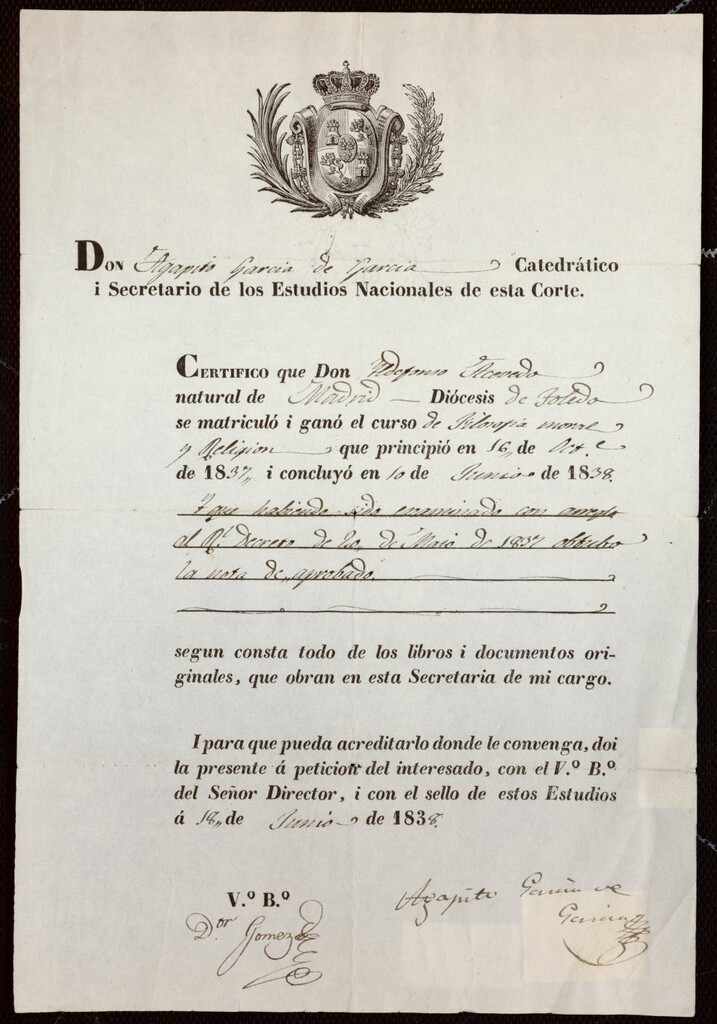 Don Agapito Garcia de Garcia Catedrático
i Secretario de los Estudios Nacionales de esta Corte.
Certifico que Don Ildefonso Acevedo
natural de Madrid — Diócesis de Toledo
se matriculó i ganó el curso de Filosofia moral
y Religion que principió en 16,, de Oct.e
de 1837,, i concluyó en 10 de Junio de 1838.
Y que habiendo sido examinado con arreglo
al Rl. Decreto de 20,, de Maio de 1837 obtubo
la nota de,, aprobado.
segun consta todo de los libros i documentos ori-
ginales, que obran en esta Secretaria de mi cargo.
I para que pueda acreditarlo donde le convenga, doi
la presente á peticion del interesado, con el V.º B.º
del Señor Director, i con el sello de estos Estudios
á 18,, de Junio de 1838.
V.º B.º
Dor. Gomez
Agapito Garcia de
Garcia